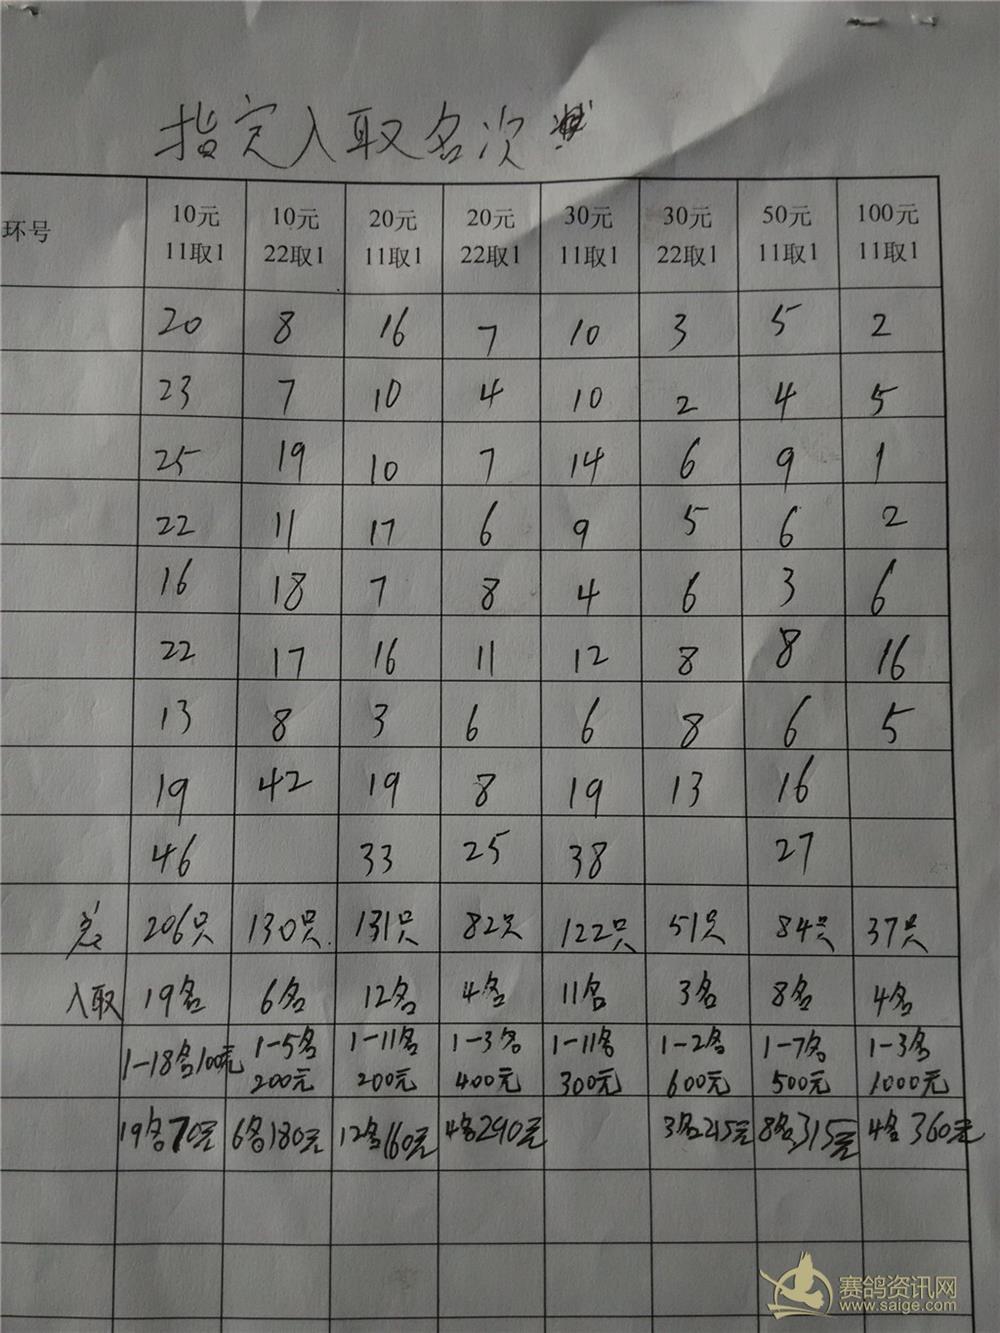 指定入取名次
环号 10元 10元 20元 20元 30元 30元 50元 100元
11取1 22取1 11取1 22取1 11取1 22取1 11取1 11取1
20 8 16 7 10 3 5 2
23 7 10 4 10 2 4 5
25 19 10 7 14 6 9 1
22 11 17 6 9 5 6 2
16 18 7 8 4 6 3 6
22 17 16 11 12 8 8 16
13 8 3 6 6 8 6 5
19 42 19 8 19 13 16
46 33 25 38 27
206只 130只 131只 82只 122只 51只 84只 37只
入取 19名 6名 12名 4名 11名 3名 8名 4名
1-18名100元 1-5名 1-11名 1-3名 1-11名 1-2名 1-7名 1-3名
200元 200元 400元 300元 600元 500元 1000元
19名70元 6名180元 12名160元 4名290元 3名215元 8名315元 4名360元
赛鸽资讯网
www.saige.com